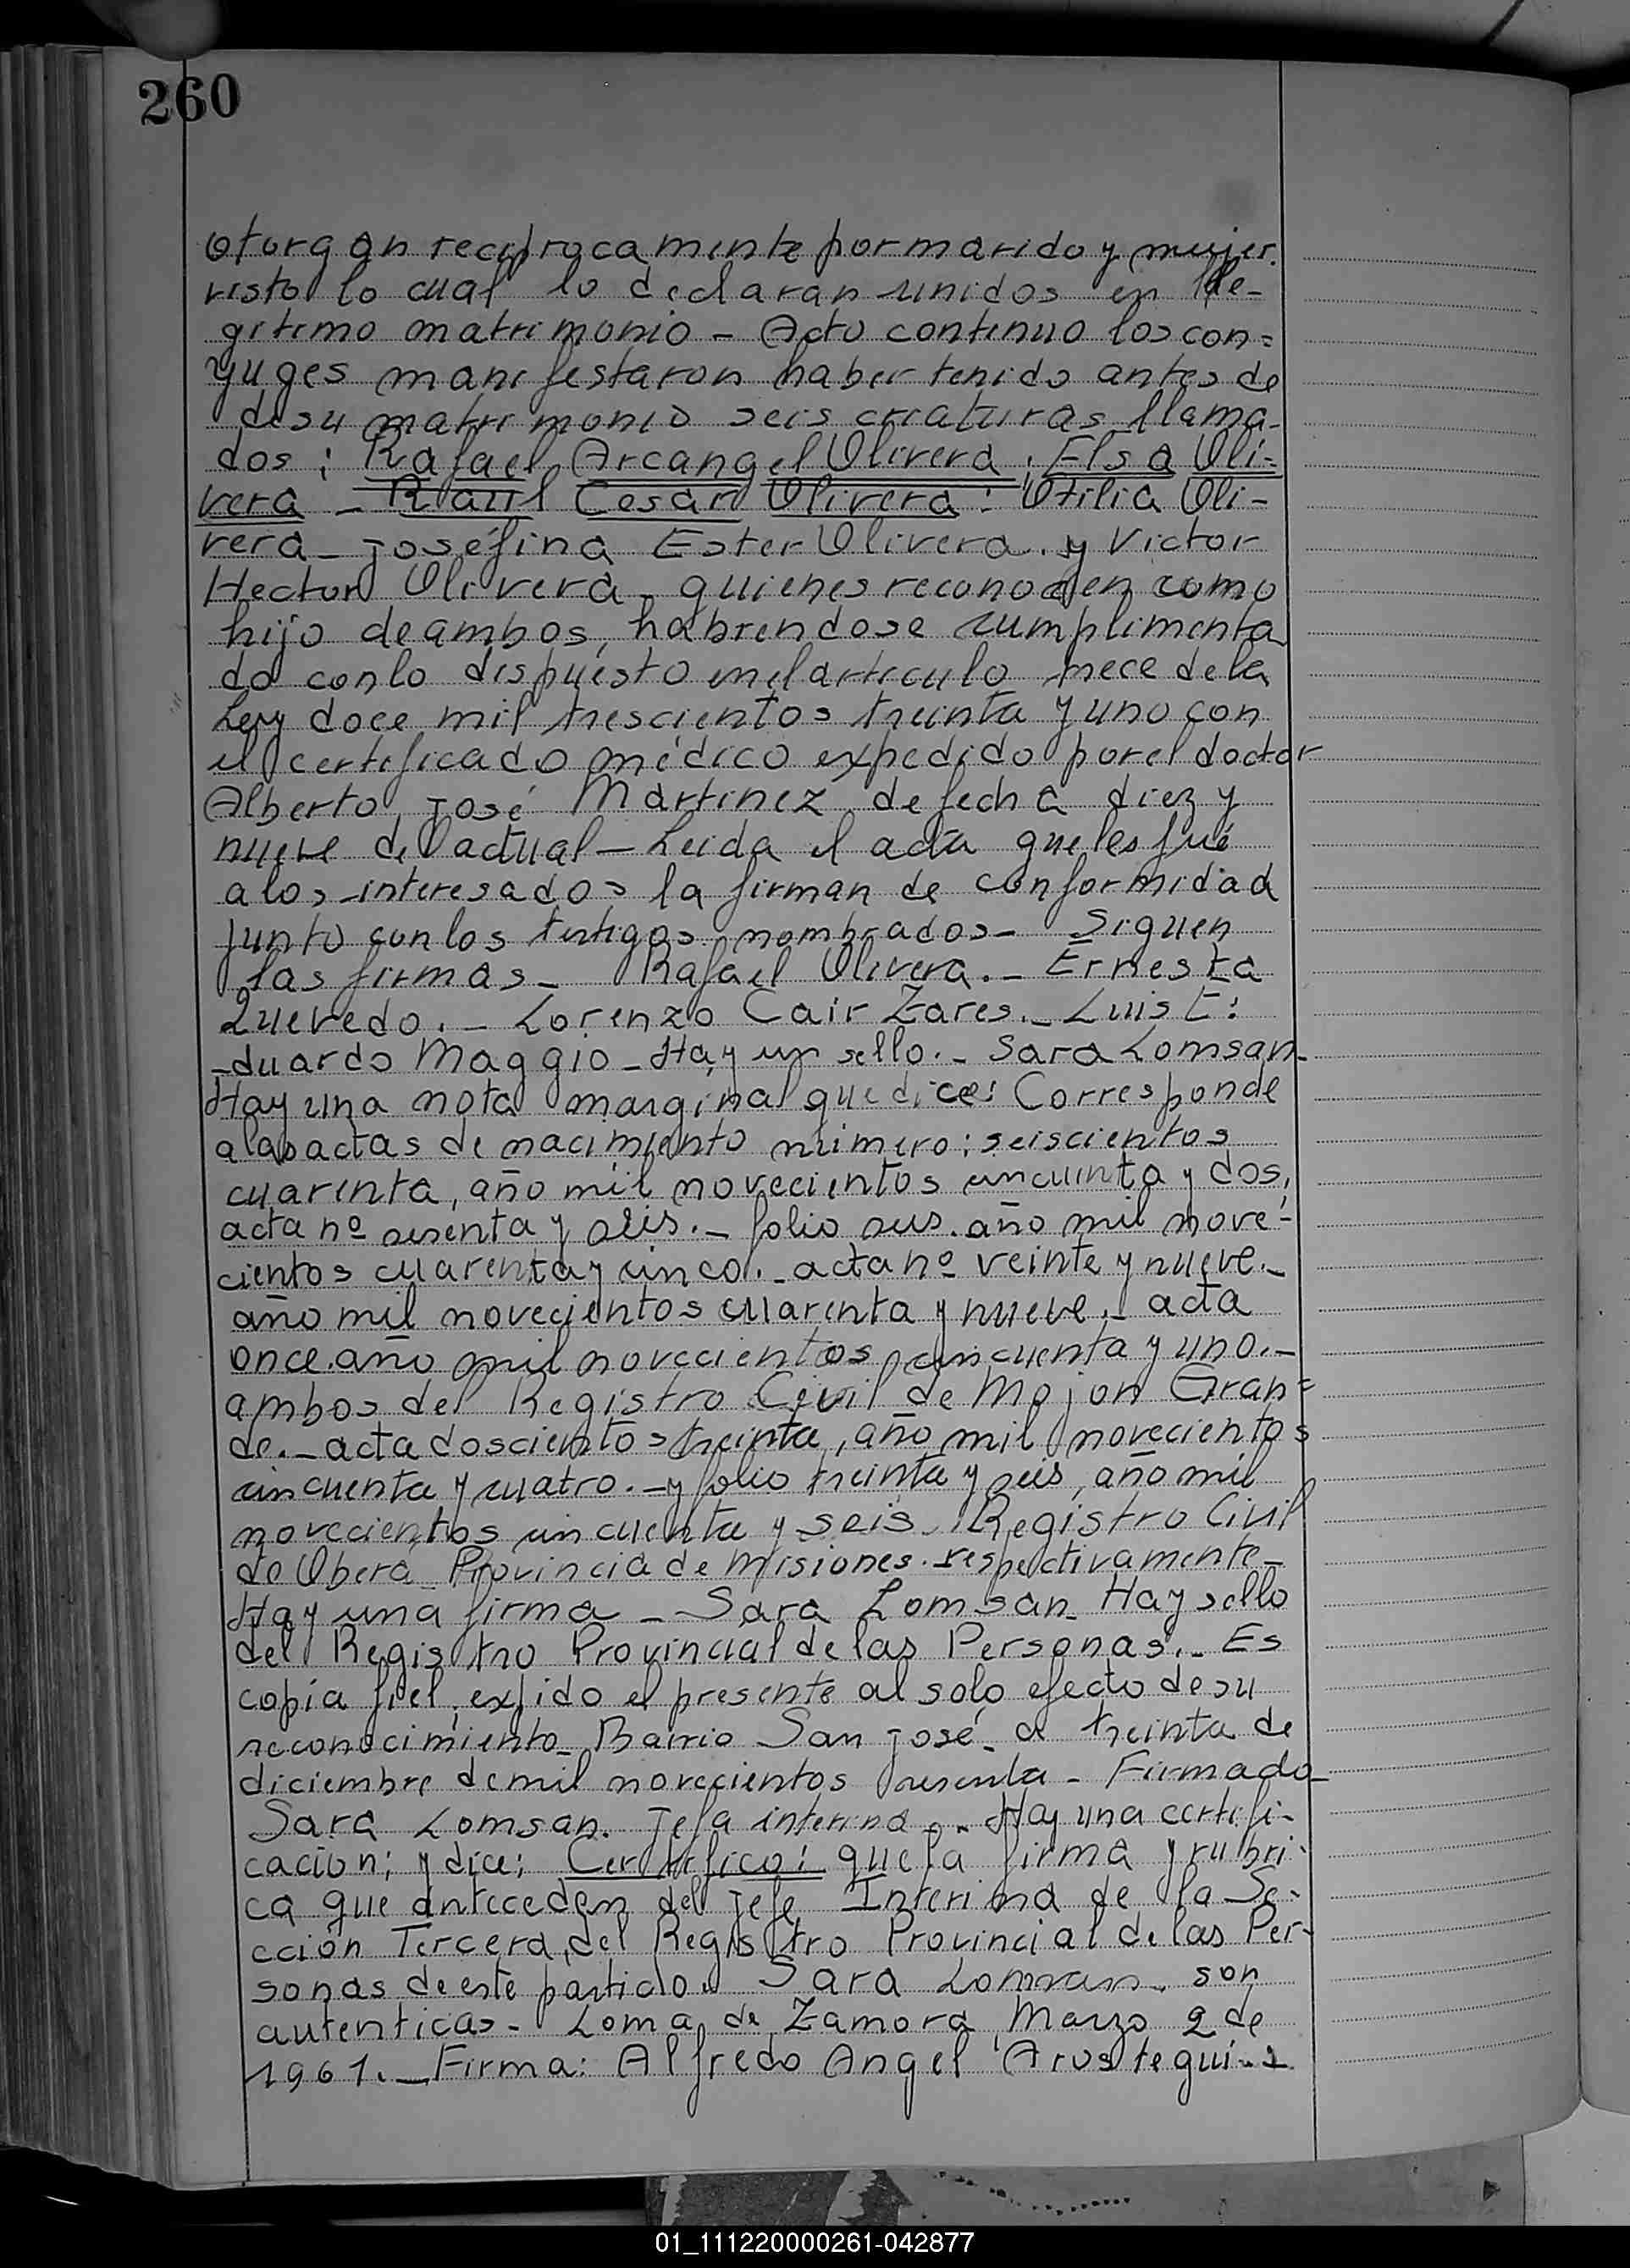 260
otorgan reciprocamente por marido y mujer.
visto lo cual lo declaran unidos en le-
gitimo matrimonio - Acto continuo los con=
yuges manifestaron haber tenido antes de
de su matrimonio seis criaturas llama-
dos: Rafael Arcangel Olivera; Elsa Oli=
vera - Raúl Cesar Olivera: Otilia Oli-
vera - Joséfina Ester Olivera. y Victor
Hector Olivera - quienes reconocen como
hijo de ambos, habiendose cumplimenta
do con lo dispuesto en el articulo trece de la
Ley doce mil trescientos treinta y uno con
el certificado médico expedido por el doctor
Alberto José Martinez de fecha diez y
nueve del actual - Leida el acta que les fué
a los interesados la firman de conformidad
junto con los testigos nombrados - Siguen
las firmas - Rafael Olivera. - Ernesta
Quevedo. - Lorenzo Cair Zares. - Luis E:
-duardo Maggio - Hay un sello. - Sara Lomsan -
Hay una nota marginal que dice: Corresponde
a las actas de nacimiento número: seiscientos
cuarenta, año mil novecientos cincuenta y dos,
acta nº sesenta y seis. - folio seis. año mil nove-
cientos cuarenta y cinco. - acta nº veinte y nueve. -
año mil novecientos cuarenta y nueve. - acta
once. año mil novecientos cincuenta y uno. -
ambos del Registro Civil de Mojon Gran=
de. - acta doscientos treinta, año mil novecientos
cincuenta y cuatro. - y folio treinta y seis, año mil
novecientos cincuenta y seis. Registro Civil
de Oberá Provincia de Misiones. respectivamente -
Hay una firma - Sara Lomsan - Hay sello
del Registro Provincial de las Personas. - Es
copia fiel, expido el presente al solo efecto de su
reconocimiento - Barrio San José - a treinta de
diciembre de mil novecientos sesenta - Firmado -
Sara Lomsan. Jefa interina. - Hay una certifi-
cación; y dice; Certifico: que la firma y rubri-
ca que anteceden del Jefe Interina de la Se-
cción Tercera del Registro Provincial de las Per-
sonas de este partido. Sara Lomsan - son
autenticas - Loma de Zamora Marzo 2 de
1961. - Firma: Alfredo Angel Arostegui. -
01_111220000261-042877